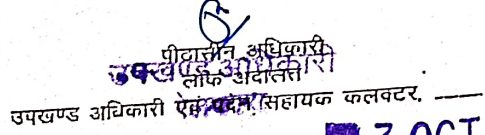 पीठासीन अधिकारी
उपखण्ड अधिकारी
लोक अदालत
उपखण्ड अधिकारी एवं पदेन सहायक कलक्टर,
7 OCT